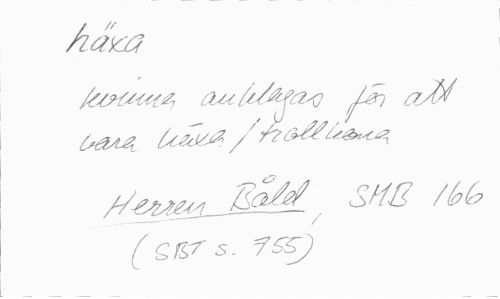 häxa
kvinna anklagas för att
vara häxa / trollkona
Herren Båld, SMB 166
(SBT s. 755)